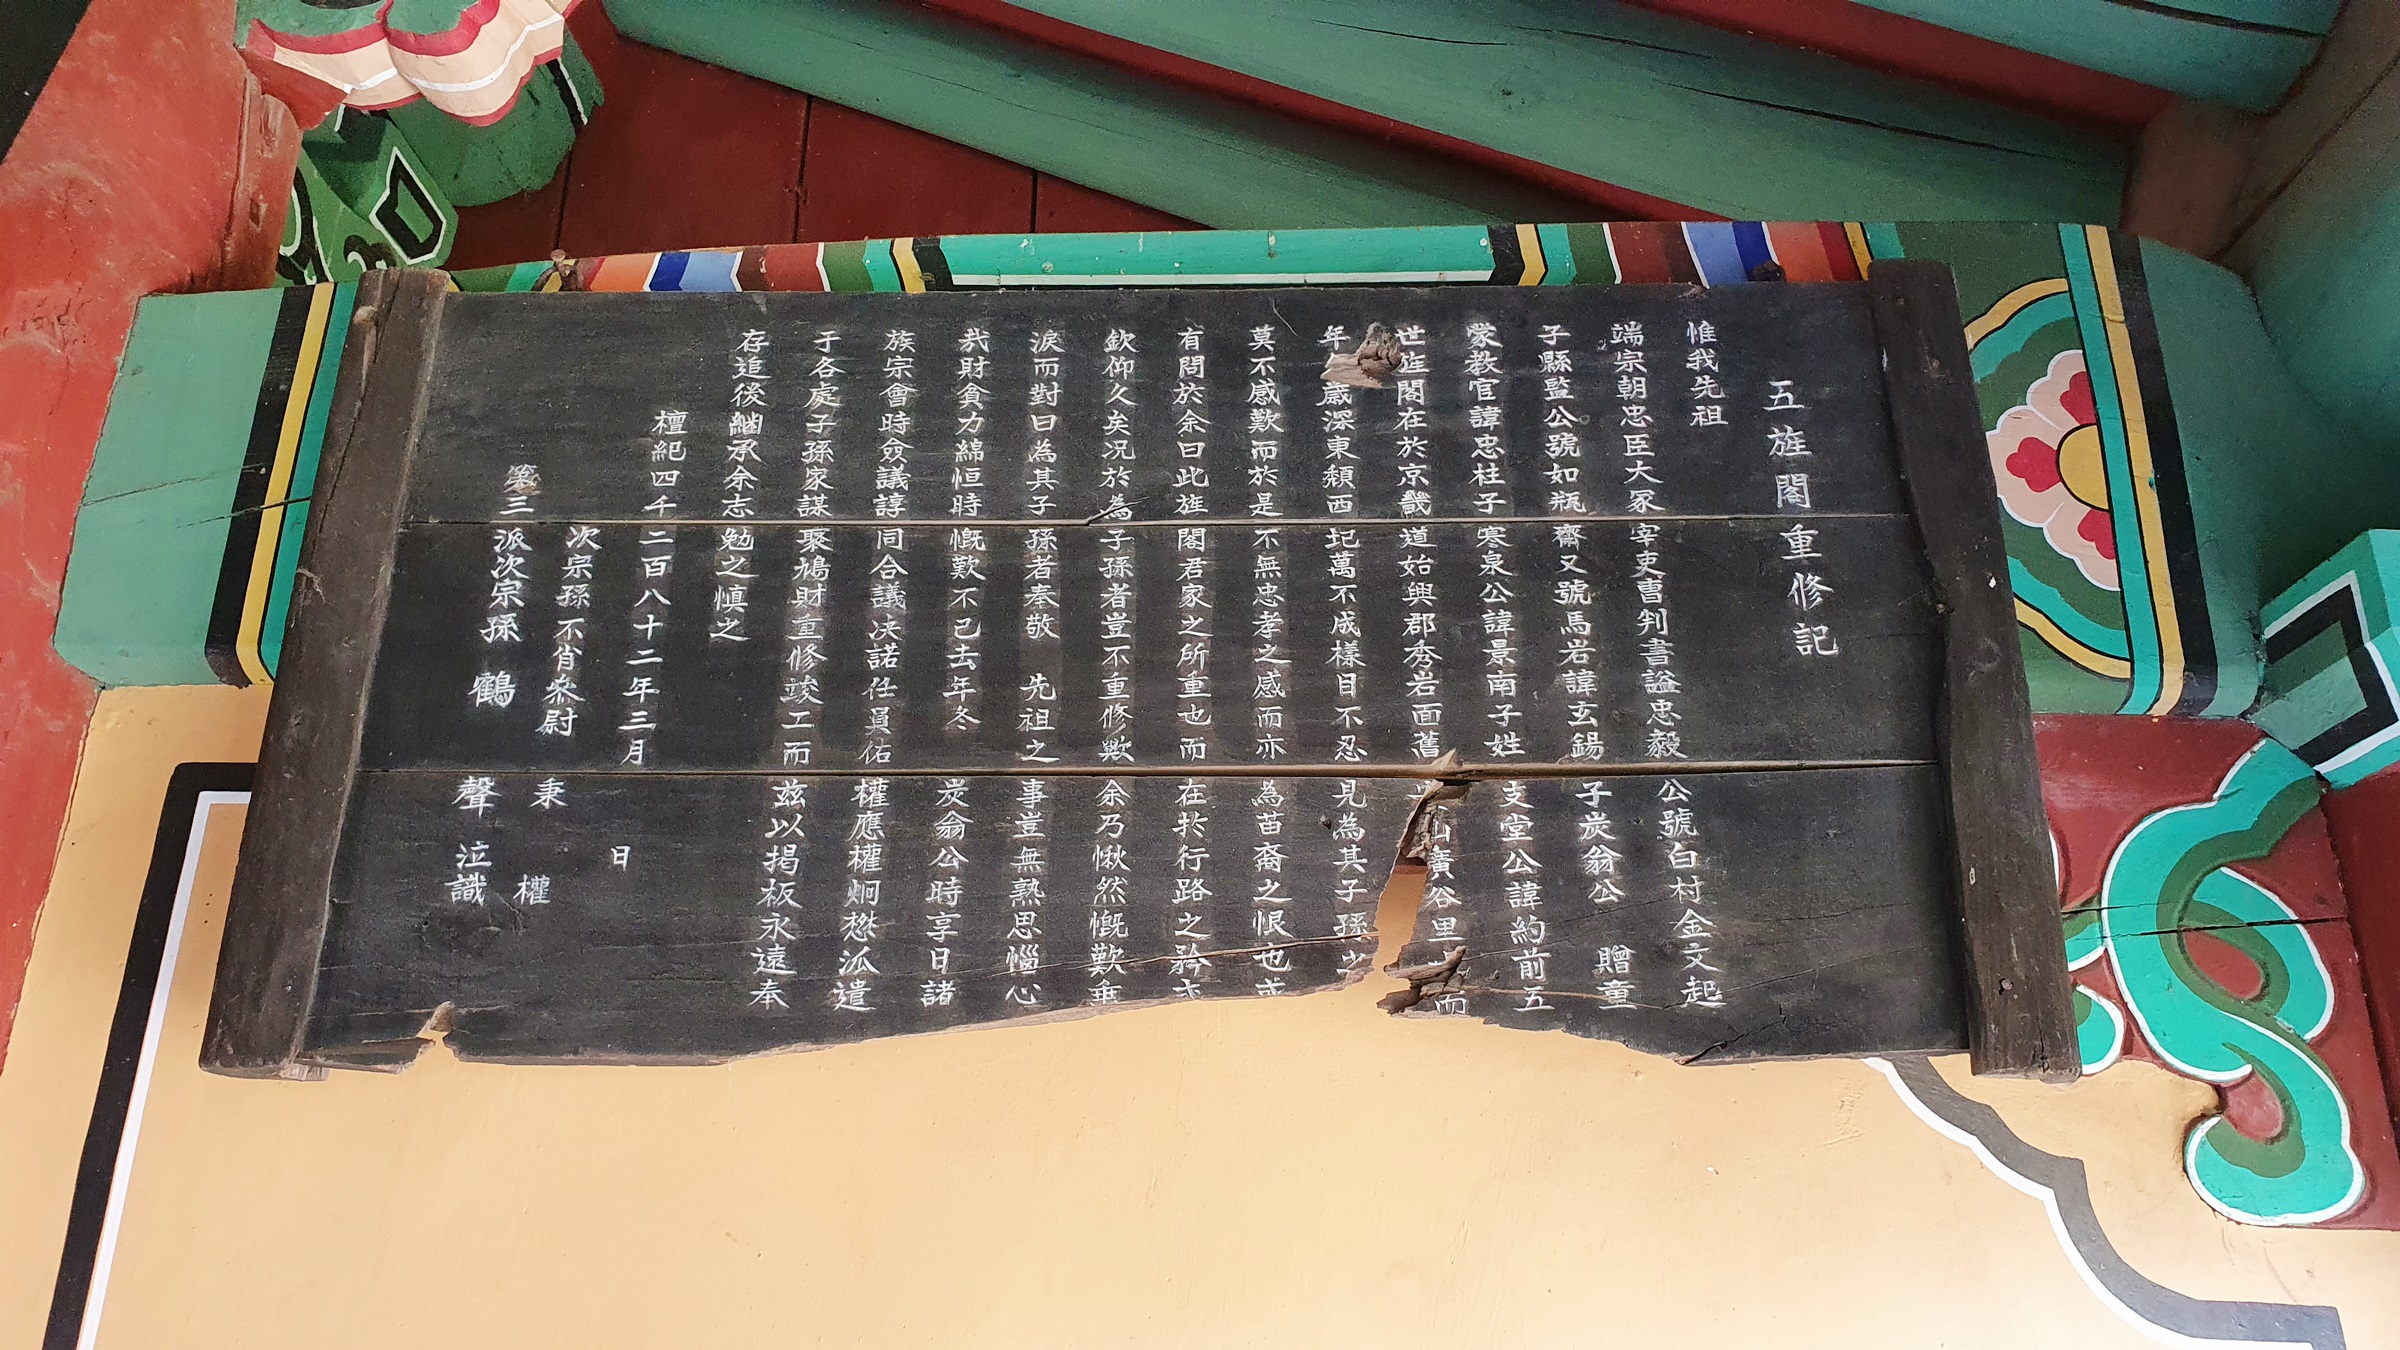 五旌閣重修記
惟我先祖
端宗朝忠臣大冢宰吏曹判書謚忠毅公號白村金文起
子縣監公號如瓶齋又號馬岩諱玄錫子炭翁公 贈童
蒙教官諱忠柱子寒泉公諱景南子姓支堂公諱約前五
世旌閣在於京畿道始興郡秀岩面舊山廣谷里而
年歲深東頹西圮萬不成樣目不忍見為其子孫
莫不感歎而於是不無忠孝之感而亦為苗裔之恨也或
有問於余曰此旌閣君家之所重也而在於行路之
欽仰久矣况於為子孫者豈不重修歟余乃愀然慨歎垂
淚而對曰為其子孫者奉敬 先祖之事豈無熟思惱心
㦲財貧力綿恒時慨歎不已去年冬 炭翁公時享日諸
族宗會時僉議諄同合議決諾任員佑權應權炯楙泒遣
于各處子孫家謀聚鳩財重修竣工而玆以揭板永遠奉
存追後継承余志勉之慎之
檀紀四千二百八十二年三月 日
次宗孫不肖參尉 秉權
第三派次宗孫 鶴聲泣識